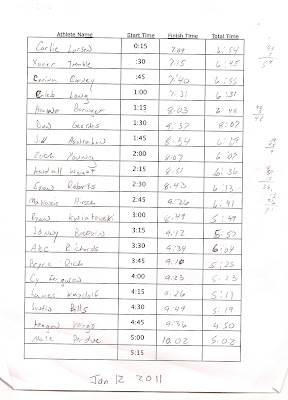 Athlete Name Start Time Finish Time Total Time
Carlie Larsen 0:15 7:09 6:54
Xavier Trimble :30 7:15 6:45
Corley :45 7:40 6:55
Caleb Long 1:00 7:31 6:31
1:15 8:03 6:48
Dan Georges 1:30 9:37 8:07
Jill 1:45 8:04 6:19
Zach Young 2:00 8:07 6:07
2:15 8:51 6:36
Evan Roberts 2:30 8:43 6:13
Hirsch 2:45 9:26 6:41
Ryan Kwiatowski 3:00 8:49 5:49
Johnny 3:15 9:12 5:57
Alec Richards 3:30 9:34 6:04
Bryce Rich 3:45 9:10 5:25
Cy Ferguson 4:00 9:23 5:23
James 4:15 9:26 5:11
Justin Bills 4:30 9:49 5:19
Keegan Vargo 4:45 9:36 4:50
Nate Perdue 5:00 10:02 5:02
5:15
Jan 12 2011